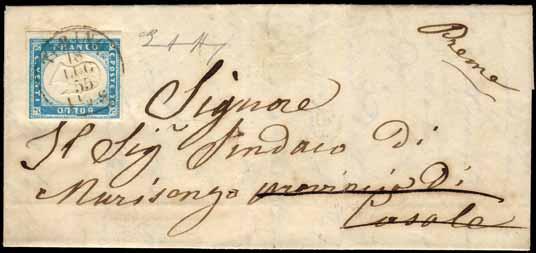 FRANCO
C. POSTE
BOLLO
LUG
55
Preme
Signore
Il Sigr Sindaco Di
Murisengo provincia Di
Casale